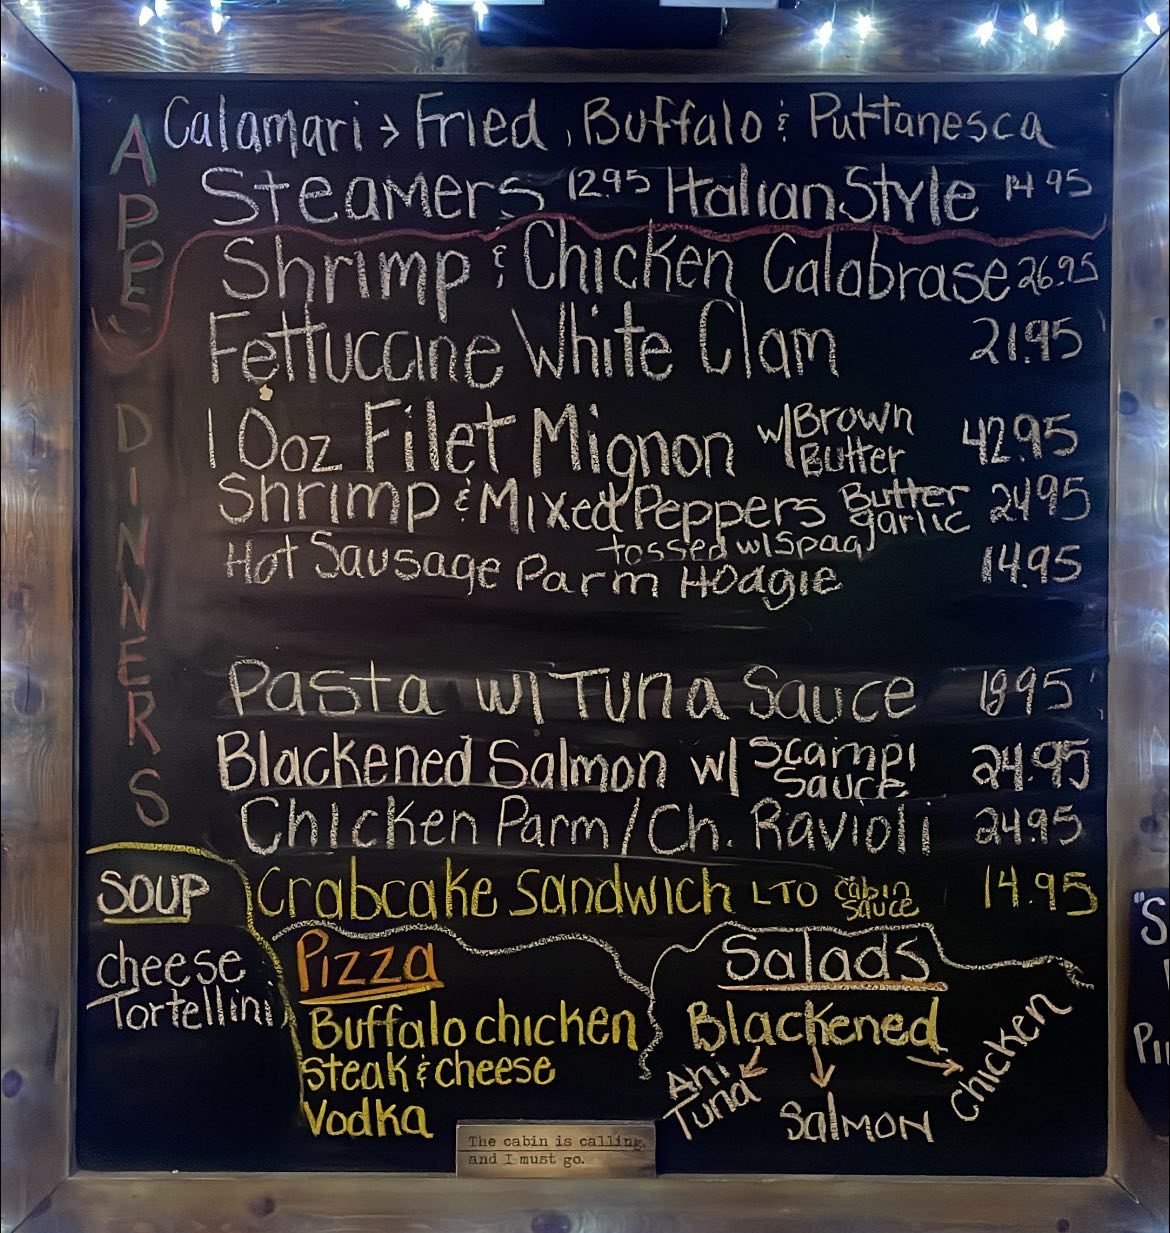 APPS
Calamari → Fried, Buffalo & Puttanesca
Steamers 12.95 Italian Style 14.95
DINNERS
Shrimp & Chicken Calabrase 26.95
Fettuccine White Clam 21.95
10oz Filet Mignon w/ Brown Butter 42.95
Shrimp & Mixed Peppers Butter garlic 24.95
tossed w/Spag
Hot Sausage Parm Hoagie 14.95
Pasta w/ Tuna Sauce 1995
Blackened Salmon w/ Scampi Sauce 24.95
Chicken Parm/Ch. Ravioli 24.95
Crabcake Sandwich LTO Cabin Sauce 14.95
SOUP
cheese
Tortellini
Pizza
Buffalo chicken
Steak & cheese
Vodka
Salads
Blackened
Ahi
Tuna
Salmon
Chicken
The cabin is calling,
and I must go.